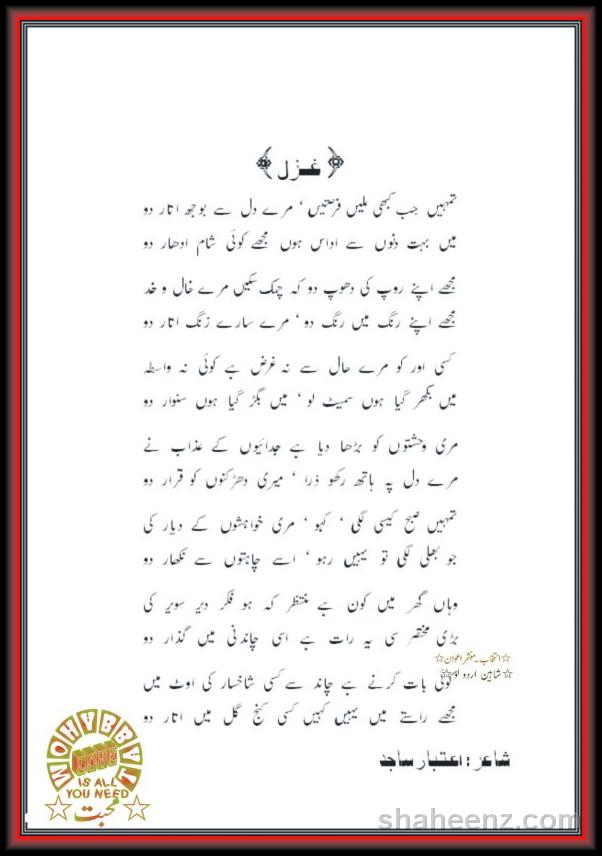 غزل
تمہیں جب کبھی ملیں فرصتیں ‘ مرے دل سے بوجھ اتار دو
میں بہت دنوں سے اداس ہوں مجھے کوئی شام ادھار دو
مجھے اپنے روپ کی دھوپ دو کہ چمک سکیں مرے خال و خد
مجھے اپنے رنگ میں رنگ دو ‘ مرے سارے زنگ اتار دو
کسی اور کو مرے حال سے نہ غرض ہے کوئی نہ واسطہ
میں بکھر گیا ہوں سمیٹ لو ‘ میں بگڑ گیا ہوں سنوار دو
مری وحشتوں کو بڑھا دیا ہے جدائیوں کے عذاب نے
مرے دل پہ ہاتھ رکھو ذرا ‘ میری دھڑکنوں کو قرار دو
تمہیں صبح کیسی لگی ‘ کہو ‘ مری خواہشوں کے دیار کی
جو بھلی لگی تو یہیں رہو ‘ اسے چاہتوں سے نکھار دو
وہاں گھر میں کون ہے منتظر کہ ہو فکر دیر سویر کی
بڑی مختصر سی یہ رات ہے اسی چاندنی میں گذار دو
کوئی بات کرنے ہے چاند سے کسی شاخسار کی اوٹ میں
مجھے راستے میں یہیں کہیں کسی کنج گل میں اتار دو
☆انتخاب۔مبشر اعوان☆
☆شاہین اردو لو☆
شاعر : اعتبار ساجد
MOHABBAT
LOVE
IS ALL
YOU NEED
☆ محبت ☆
shaheenz.com